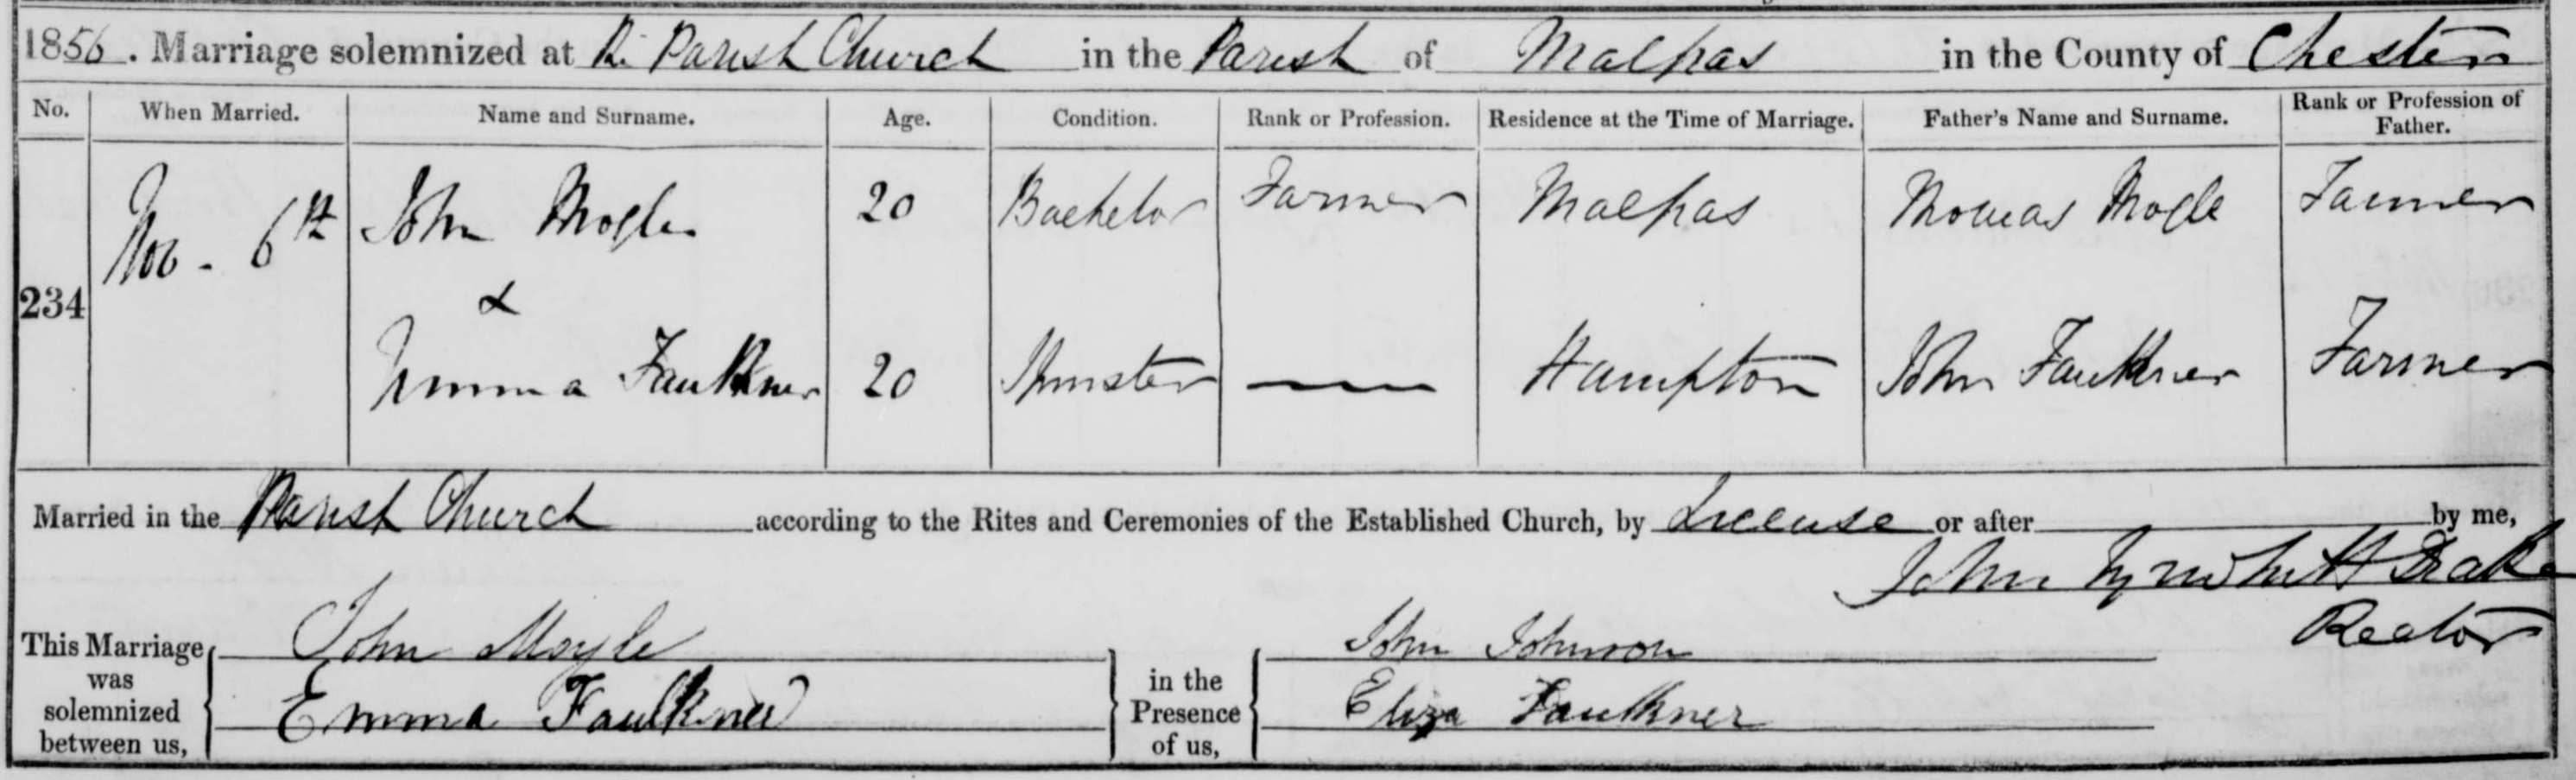 1856. Marriage solemnized at the Parish Church in the Parish of Malpas in the County of Chester
No. When Married. Name and Surname. Age. Condition. Rank or Profession. Residence at the Time of Marriage. Father's Name and Surname. Rank or Profession of Father.
234 Nov - 6th John Mogle 20 Bachelor Farmer Malpas Thomas Mogle Farmer
&
Emma Faulkner 20 Spinster — Hampton John Faulkner Farmer
Married in the Parish Church according to the Rites and Ceremonies of the Established Church, by License or after by me,
John Tyrwhitt Drake
Rector
This Marriage was solemnized between us, John Moyle in the Presence of us, John Johnson
Emma Faulkner Eliza Faulkner